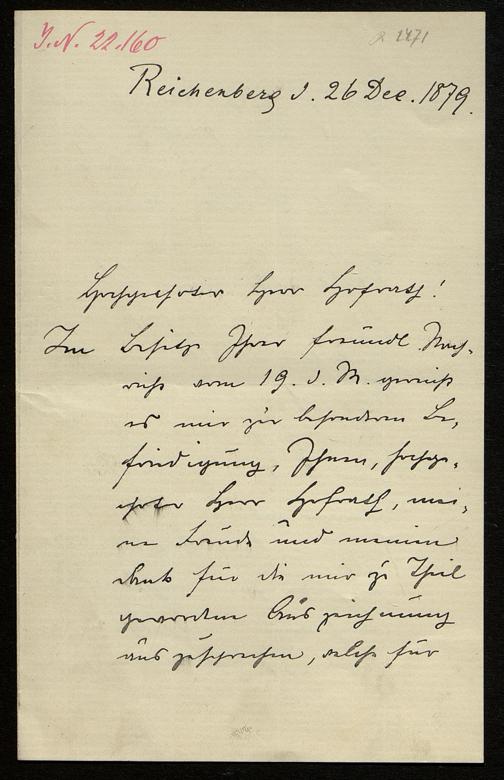 J.N. 22.160
2471
Reichenberg d. 26 Dec. 1879.
Hochgeehrter Herr Hofrath!
Im Besitze Ihrer freundl. Nach-
richt vom 19. d. M. gereicht
es mir zur besonderen Be-
friedigung, Ihnen, hochge-
ehrter Herr Hofrath, mei-
ne Freude und meinen
Dank für die mir zu Theil
gewordene Auszeichnung
auszusprechen, welche für